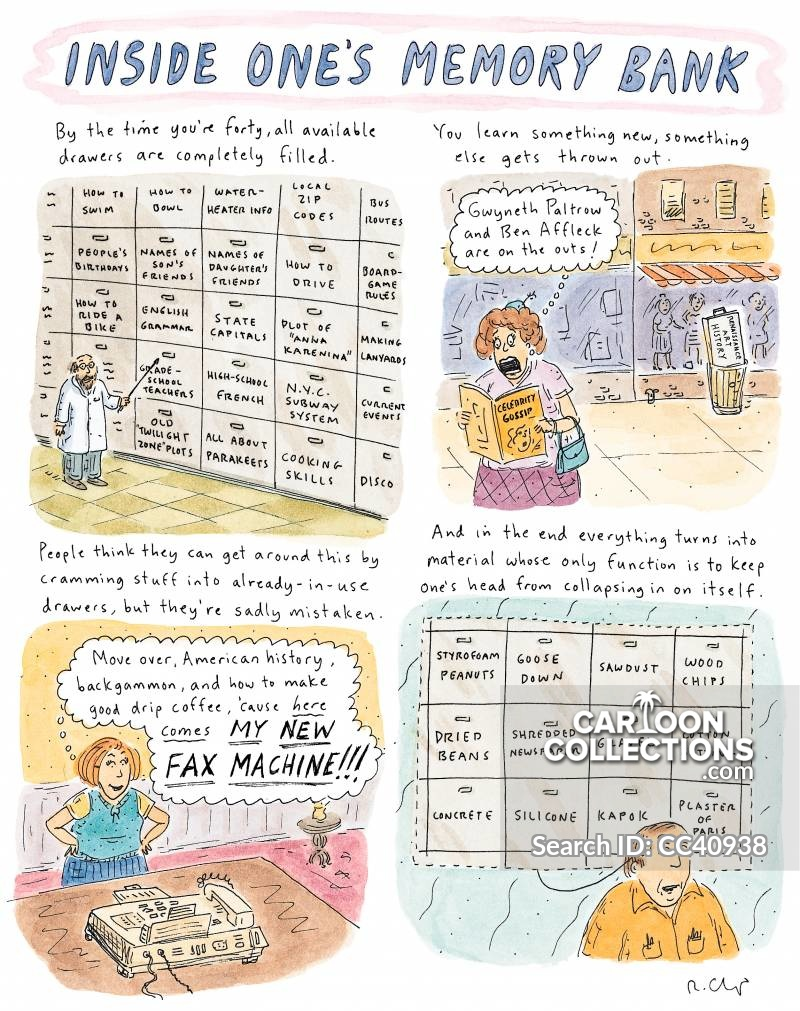 INSIDE ONE'S MEMORY BANK
By the time you're forty, all available
drawers are completely filled.
HOW TO
SWIM
HOW TO
BOWL
WATER-
HEATER INFO
LOCAL
ZIP
CODES
BUS
ROUTES
PEOPLE'S
BIRTHDAYS
NAMES OF
SON'S
FRIENDS
NAMES OF
DAUGHTER'S
FRIENDS
HOW TO
DRIVE
BOARD-
GAME
RULES
HOW TO
RIDE A
BIKE
ENGLISH
GRAMMAR
STATE
CAPITALS
PLOT OF
"ANNA
KARENINA"
MAKING
LANYARDS
GRADE-
SCHOOL
TEACHERS
HIGH-SCHOOL
FRENCH
N.Y.C.
SUBWAY
SYSTEM
CURRENT
EVENTS
OLD
"TWILIGHT
ZONE" PLOTS
ALL ABOUT
PARAKEETS
COOKING
SKILLS
DISCO
You learn something new, something
else gets thrown out.
Gwyneth Paltrow
and Ben Affleck
are on the outs!
CELEBRITY
GOSSIP
RENAISSANCE
ART
HISTORY
People think they can get around this by
cramming stuff into already-in-use
drawers, but they're sadly mistaken.
Move over, American history,
backgammon, and how to make
good drip coffee, 'cause here
comes MY NEW
FAX MACHINE!!!
And in the end everything turns into
material whose only function is to keep
one's head from collapsing in on itself.
STYROFOAM
PEANUTS
GOOSE
DOWN
SAWDUST
WOOD
CHIPS
DRIED
BEANS
SHREDDED
NEWSPAPER
CONCRETE
SILICONE
KAPOK
PLASTER
OF
PARIS
CARTOON
COLLECTIONS
.com
Search ID: CC40938
R. Chast